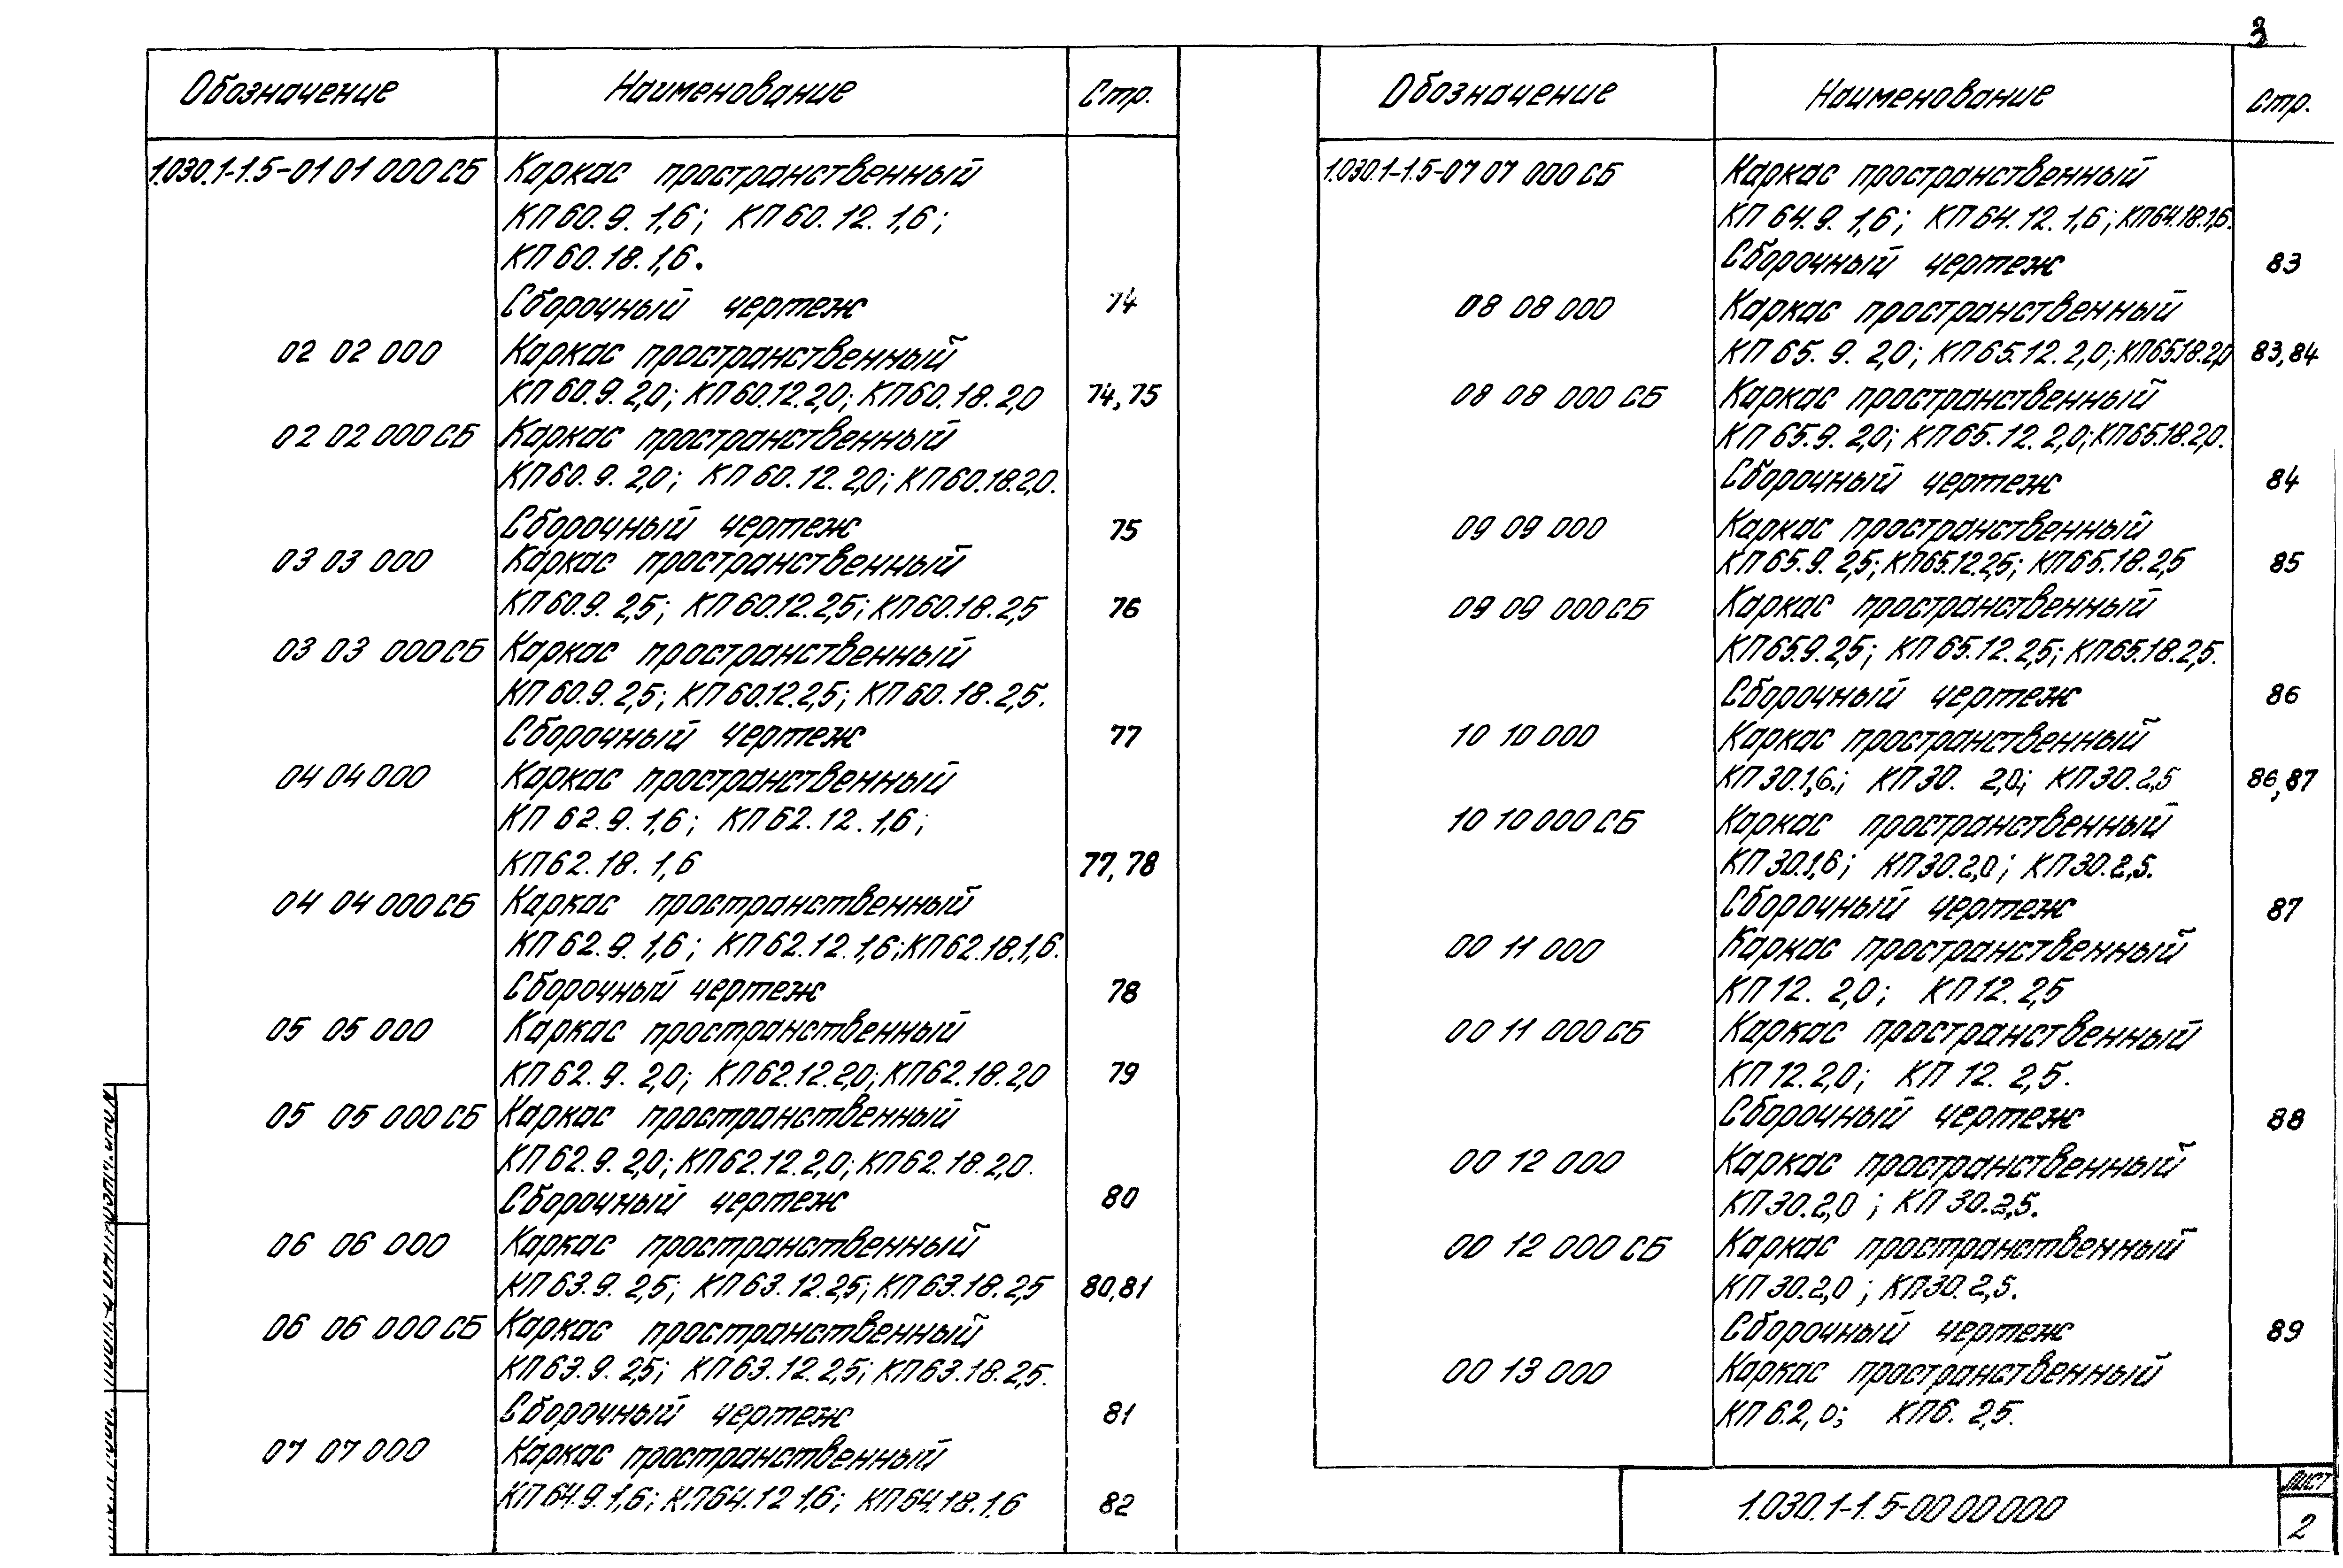 3
Обозначение Наименование Стр.
1.030.1-1.5-01 01 000 СБ Каркас пространственный
КП 60.9. 1,6; КП 60.12. 1,6;
КП 60.18.1,6.
Сборочный чертеж 74
02 02 000 Каркас пространственный
КП 60.9. 2,0; КП 60.12.2,0; КП 60.18.2,0 74,75
02 02 000 СБ Каркас пространственный
КП 60.9. 2,0; КП 60.12. 2,0; КП 60.18.2,0.
Сборочный чертеж 75
03 03 000 Каркас пространственный
КП 60.9. 2,5; КП 60.12.2,5; КП 60.18.2,5 76
03 03 000 СБ Каркас пространственный
КП 60.9. 2,5; КП 60.12.2,5; КП 60.18.2,5.
Сборочный чертеж 77
04 04 000 Каркас пространственный
КП 62.9. 1,6; КП 62.12.1,6;
КП 62.18. 1,6 77,78
04 04 000 СБ Каркас пространственный
КП 62.9. 1,6; КП 62.12. 1,6; КП 62.18.1,6.
Сборочный чертеж 78
05 05 000 Каркас пространственный
КП 62.9. 2,0; КП 62.12.2,0; КП 62.18.2,0 79
05 05 000 СБ Каркас пространственный
КП 62.9. 2,0; КП 62.12.2,0; КП 62.18.2,0.
Сборочный чертеж 80
06 06 000 Каркас пространственный
КП 63.9. 2,5; КП 63.12.2,5; КП 63.18.2,5 80,81
06 06 000 СБ Каркас пространственный
КП 63.9. 2,5; КП 63.12.2,5; КП 63.18.2,5.
Сборочный чертеж 81
07 07 000 Каркас пространственный
КП 64.9.1,6; КП 64.12 1,6; КП 64.18.1,6 82
Обозначение Наименование Стр.
1.030.1-1.5-07 07 000 СБ Каркас пространственный
КП 64.9. 1,6; КП 64.12. 1,6; КП 64.18.1,6.
Сборочный чертеж 83
08 08 000 Каркас пространственный
КП 65. 9. 2,0; КП 65.12. 2,0; КП 65.18.2,0 83,84
08 08 000 СБ Каркас пространственный
КП 65.9. 2,0; КП 65.12. 2,0; КП 65.18.2,0.
Сборочный чертеж 84
09 09 000 Каркас пространственный
КП 65.9. 2,5; КП 65.12.2,5; КП 65.18.2,5 85
09 09 000 СБ Каркас пространственный
КП 65.9.2,5; КП 65.12.2,5; КП 65.18.2,5.
Сборочный чертеж 86
10 10 000 Каркас пространственный
КП 30.1,6.; КП 30. 2,0; КП 30.2,5 86,87
10 10 000 СБ Каркас пространственный
КП 30.1,6; КП 30.2,0; КП 30.2,5.
Сборочный чертеж 87
00 11 000 Каркас пространственный
КП 12. 2,0; КП 12.2,5
00 11 000 СБ Каркас пространственный
КП 12.2,0; КП 12. 2,5.
Сборочный чертеж 88
00 12 000 Каркас пространственный
КП 30.2,0; КП 30.2,5.
00 12 000 СБ Каркас пространственный
КП 30.2,0; КП 30.2,5.
Сборочный чертеж 89
00 13 000 Каркас пространственный
КП 6.2,0; КП 6. 2,5.
1.030.1-1.5-00 00 000
лист
2